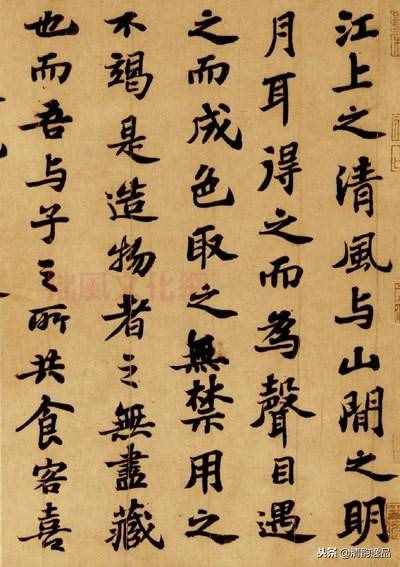 江上之清風与山閒之明
月耳得之而為聲目遇
之而成色取之無禁用之
不竭是造物者之無盡藏
也而吾与子之所共食客喜
头条 @清韵逸品